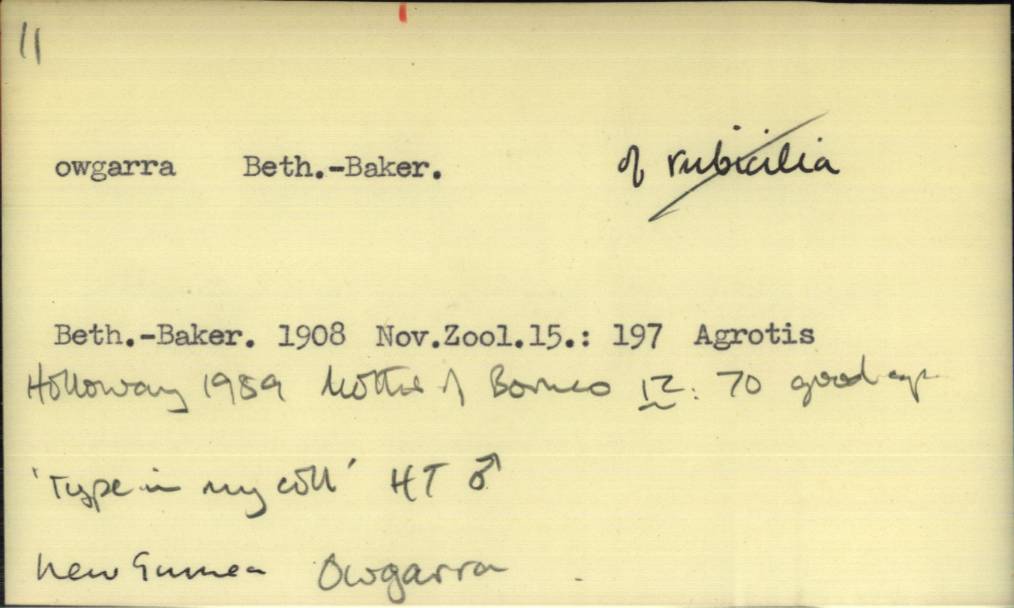 11
owgarra Beth.-Baker. of rubicilia
Beth.-Baker. 1908 Nov.Zool.15.: 197 Agrotis
Holloway 1989 Moths of Borneo 12: 70 good sp.
'Type in my coll' HT ♂
New Guinea Owgarra